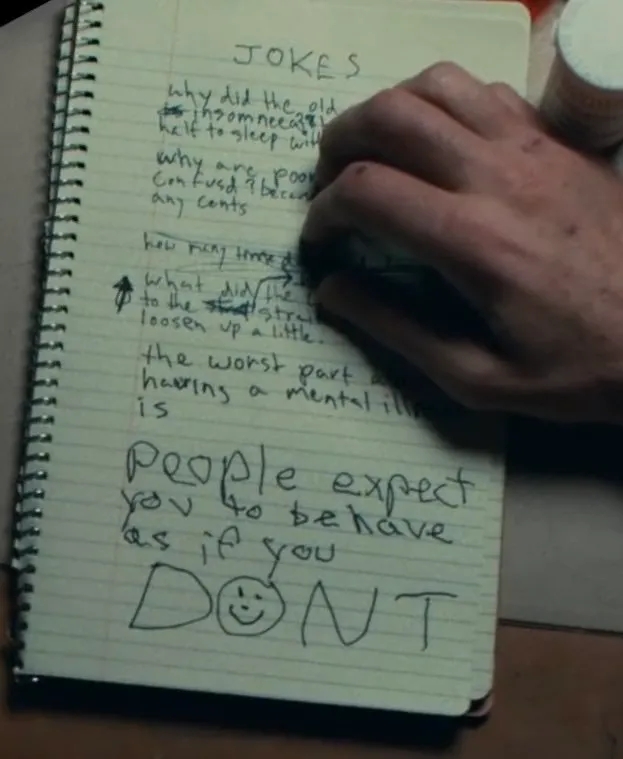 JOKES
why did the old
insomneea?
half to sleep with
why are poor
confusd? becau
any cents
how many
what did the
to the strai
loosen up a little.
the worst part
having a mental ill
is
people expect
you to behave
as if you
DONT